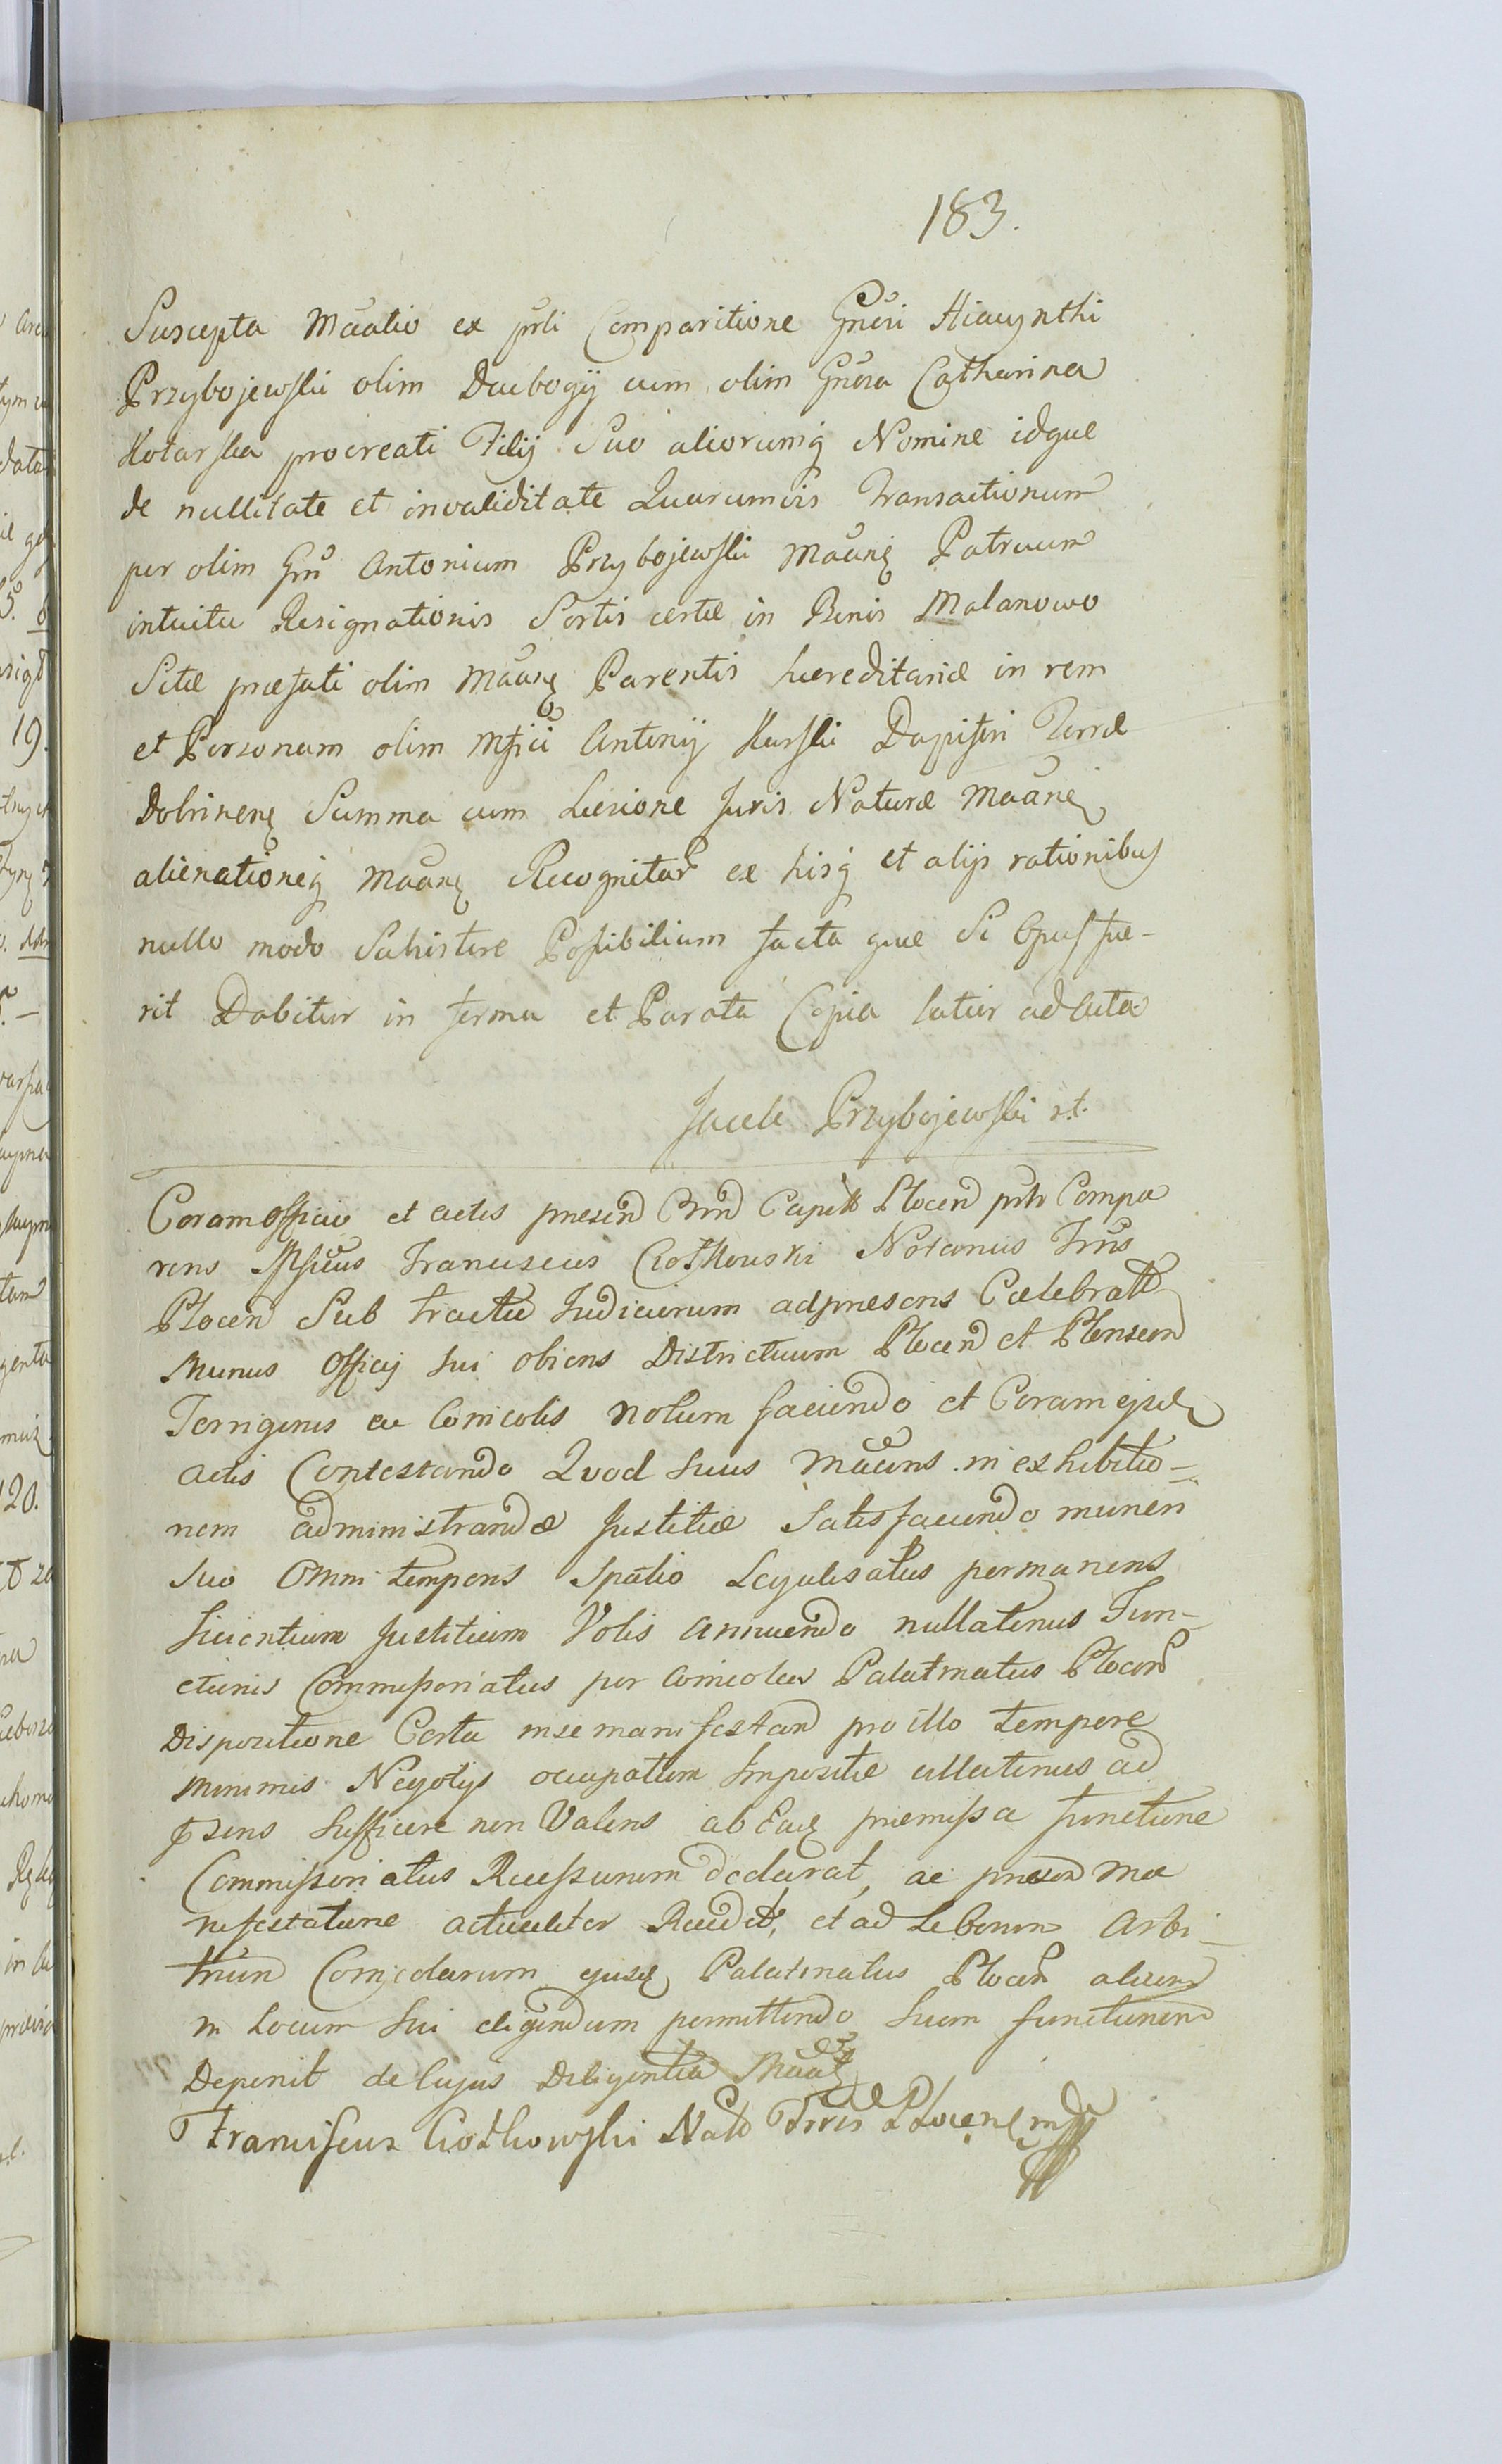 183.
Suscepta Maãtio ex prãli Comparitione Gnõri Hiacynthi
Przybojewski olim Daebogij cum olim Gnõra Catharina
Kotarska procreati Filij Suo aliorumq Nomine idque
de nullitate et invaliditate Quarumvis Transactionum
per olim Gnũ Antonium Przybojewski Maãnẽ Patruum
intuitu Resignationis Sortis certæ in Bonis Malanowo
Sitæ præfati olim Maãnẽ Parentis hæreditariæ in rem
et Personam olim Mfici Antonij Karski Dapiferi Terræ
Dobrinenẽ Summa cum Læsione Juris Naturæ Maãnẽ
alienationeq Maãnẽ Recognitar ex hisq et alijs rationibus
nullo modo Subsistere Possibilium facta quæ Si Opus fue-
rit Dabitur in forma et Parata Copia latior ad Acta
Jacek Przybojewski
Coram Officio et actis præsen Brn Capit Plocen prlr Compa
rens Mficus Franciscus Ciotkowski Notarius Trris
Plocen Sub tractu Judiciorum ad præsens Celebratt
Munus Officij sui obiens Districtuum Plocen et Plonscen
Terrigenis ac Comicolis notum faciendo et Coram ejsd
actis Contestando Quod Suus Maãns in exhibitio-
nem administrandæ Justitiæ Satisfaciendo muneri
suo Omni temporis Spatio Legalisatus permanens
Sicientium Justitiam Votis annuendo nullatenus Fun-
ctionis Commissoriatus per Comicolas Palatinatus Plocen
Dispositione Certa in se manifestan pro illo tempore
minimis Negotijs occupatum Impositæ ullatenus ad
præsens Sufficere non Valens ab Eadẽ præmissa functione
Commissoriatus Recessurum declarat, ac præsen ma
nifestatione actualiter Recedit, et ad Liberum Arbi-
trium Comicolarum ejusd Palatinatus Plocen alium
in Locum Sui eligendum permittendo Suam functionem
Deponit de Cujus Diligentia Maãt
Franciscus Ciotkowski Nots Trris Plocens mp